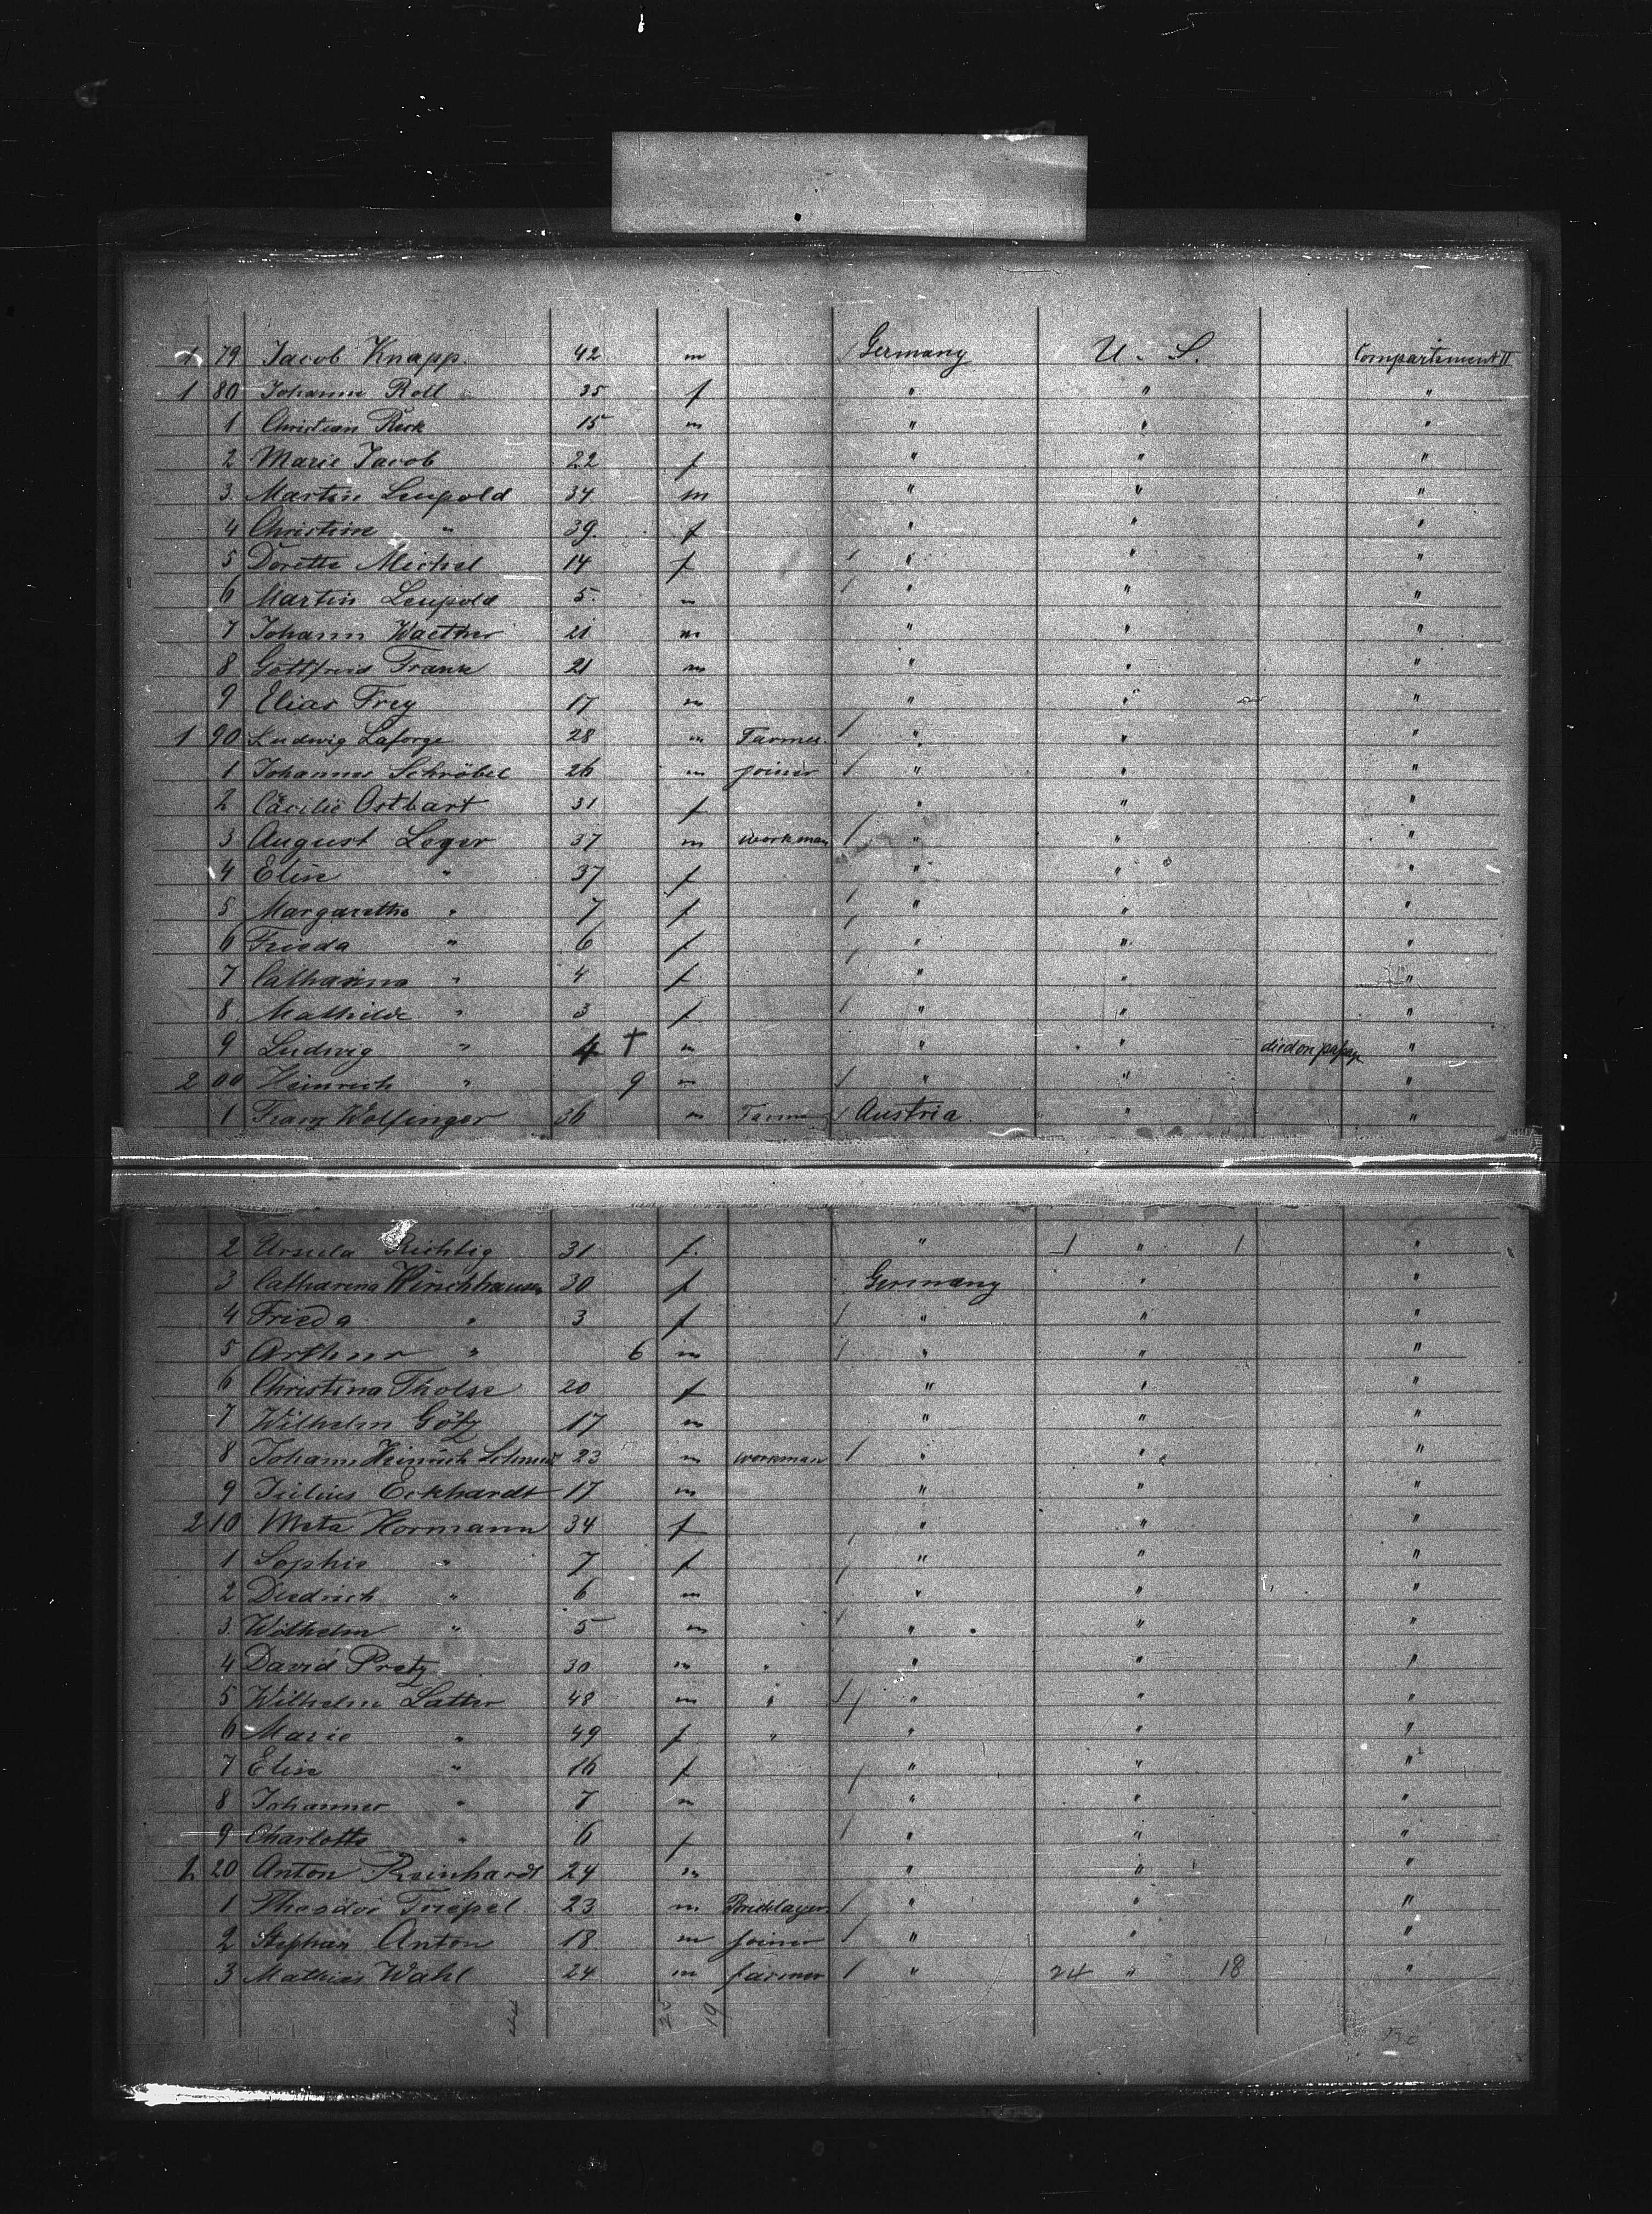 1 79 Jacob Knapp. 42 m Germany U. S. Compartement II
1 80 Johanne Roll 35 f " " "
1 Christian 15 m " " "
2 Marie Jacob 22 f " " "
3 Martin Leupold 34 m " " "
4 Christine " 39. f " " "
5 Dorette Michel 14 f " " "
6 Martin Leupold 5. m " " "
7 Johann 21 m " " "
8 Gottfried Frank 21 m " " "
9 Elias Frey 17 m " " "
1 90 Ludwig Laforge 28 m Farmer " " "
1 Johannes Schröbel 26 m joiner " " "
2 Cäcilie Ostbart 31 f " " "
3 August Loger 37 m workman " " "
4 Elise " 37 f " " "
5 Margarethe " 7 f " " "
6 Frieda " 6 f " " "
7 Catharina " 4 f " " "
8 Mathilde " 3 f " " "
9 Ludwig " 4 † m " " died on "
2 00 Heinrich " 9 m " " "
1 Franz Wolfinger 36 m Farmer Austria. " "
2 Ursula Richtig 31 f. " 1 " 1 "
3 Catharina 30 f Germany " "
4 Frieda " 3 f " " "
5 Arthur " 6 m " " "
6 Christina Tholse 20 f " " "
7 Wilhelm Götz 17 m " " "
8 Johann Heinrich Schmidt 23 m workman " " "
9 Julius Eckhardt 17 m " " "
2 10 Meta Hormann 34 f " " "
1 Sophie " 7 f " " "
2 Diedrich " 6 m " " "
3 Wilhelm " 5 m " " "
4 David Pretz 30 m " " " "
5 Wilhelm Latter 48 m " " " "
6 Marie " 49 f " " " "
7 Elise " 16 f " " "
8 Johannes " 7 m " " "
9 Charlotte " 6 f " " "
2 20 Anton Reinhardt 24 m " " "
1 Theodor Triepel 23 m Bricklayer " " "
2 Stephan Anton 18 m joiner " " "
3 Mathias Wahl 24 m farmer " 24 " 18 "
44 25 19